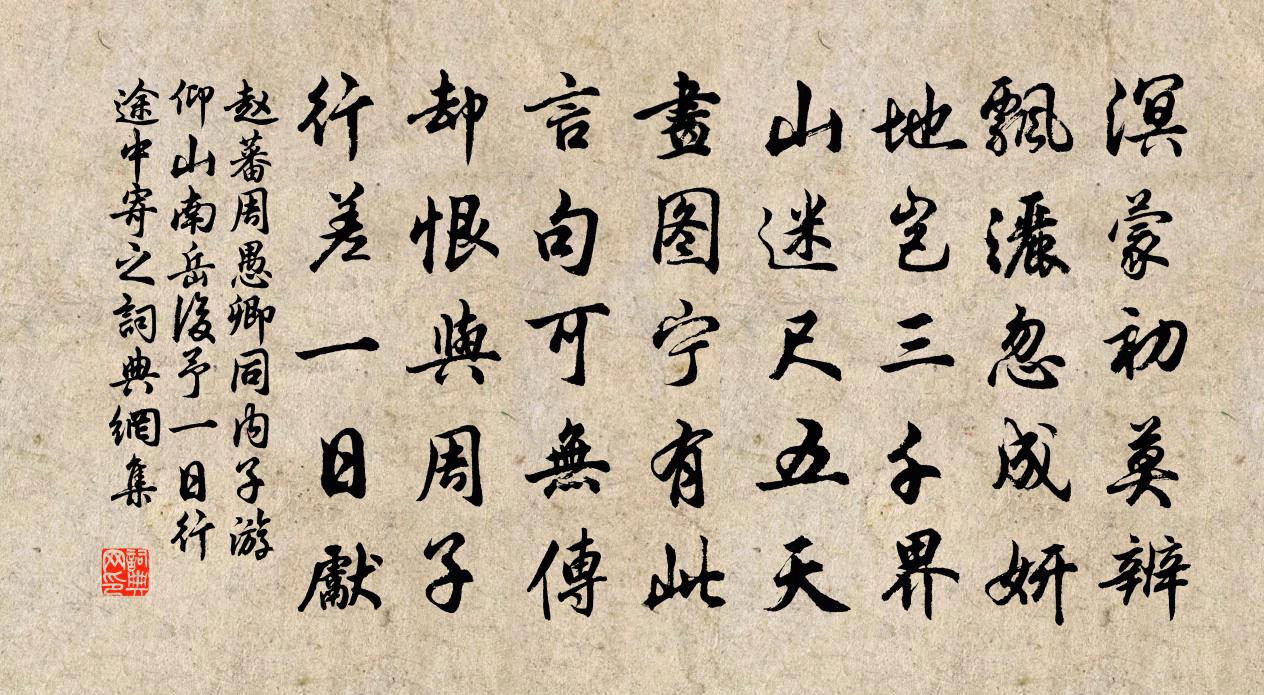 溟蒙初莫辨
飄灑忽成妍
地岂三千界
山迷尺五天
畫图宁有此
言句可無傳
却恨與周子
行差一日獻
赵蕃周愚卿同内子游
仰山南岳後予一日行
途中寄之詞典網集
詞典网印